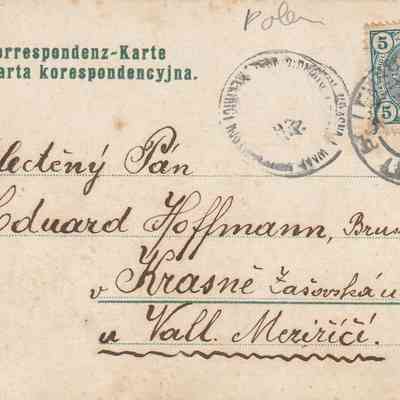 Polen
orrespondenz-Karte
arta korespondencyjna.
5 5
lectěný Pán
Eduard Hoffmann, Brus
v Krasně Zašovská u
u Vall. Meziříčí.